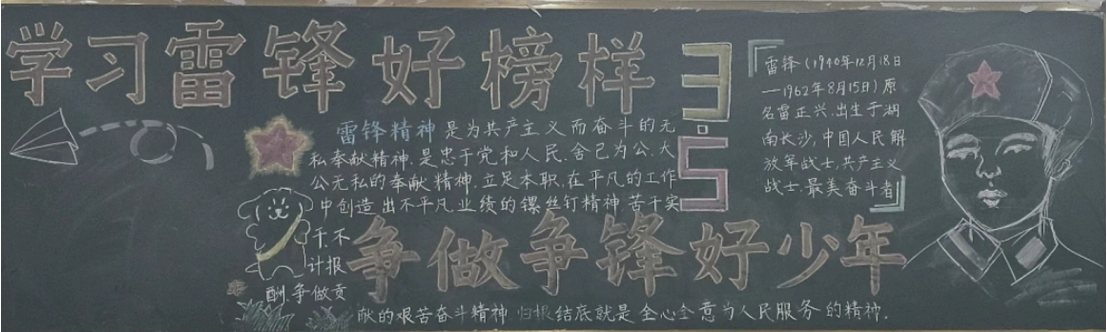 学习雷锋好榜样
3.5
雷锋精神是为共产主义而奋斗的无
私奉献精神.是忠于党和人民.舍己为公.大
公无私的奉献精神.立足本职.在平凡的工作
中创造出不平凡业绩的镙丝钉精神.苦干实
干.不
计报
酬.争做贡
献的艰苦奋斗精神 归根结底就是全心全意为人民服务的精神.
雷锋(1940年12月18日
—1962年8月15日)原
名雷正兴.出生于湖
南长沙,中国人民解
放军战士.共产主义
战士.最美奋斗者
争做争锋好少年